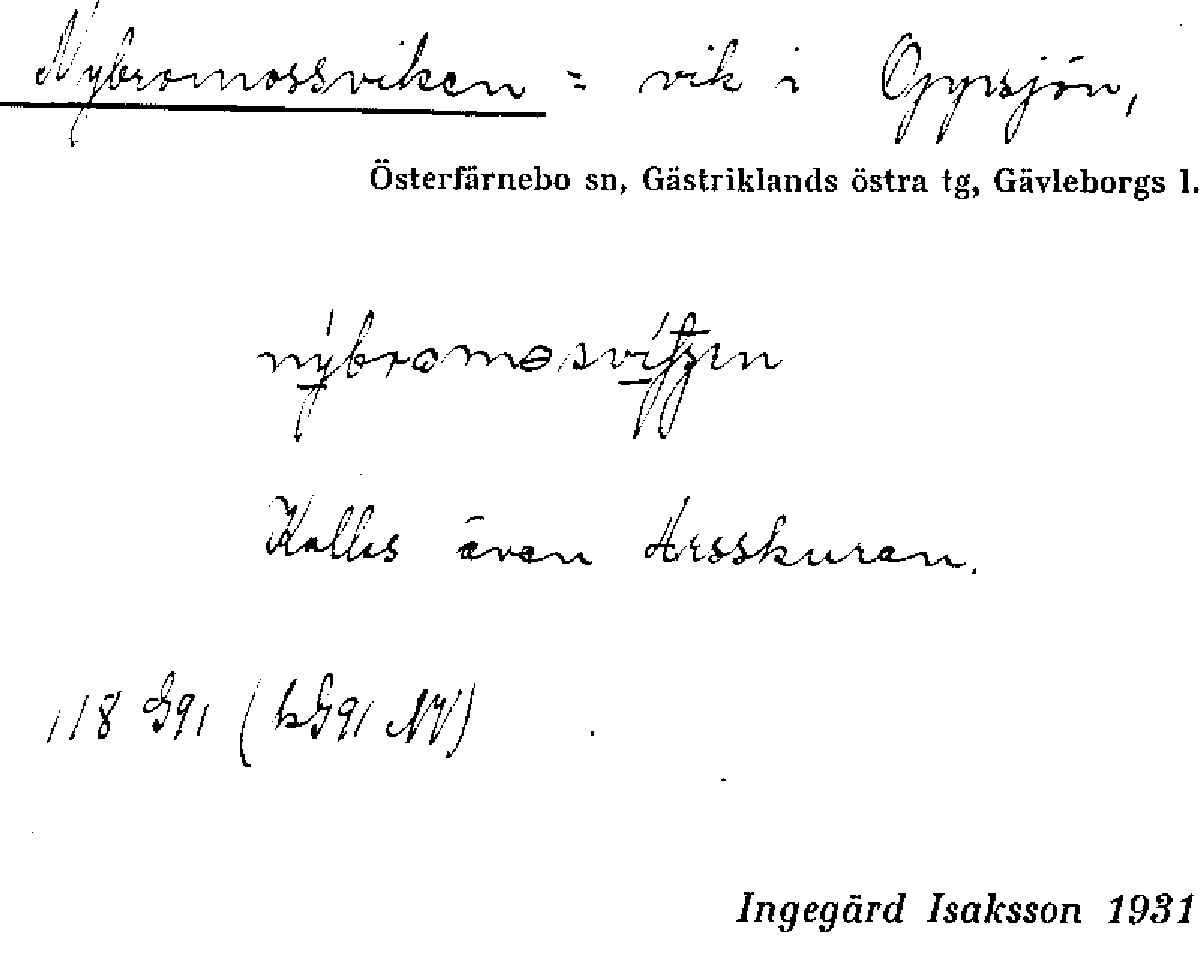 Nybromossviken = vik i Gypsjön,
Österfärnebo sn, Gästriklands östra tg, Gävleborgs l.
Kallas även Arsskuren.
118 G91 (bG91 NV)
Ingegärd Isaksson 1931